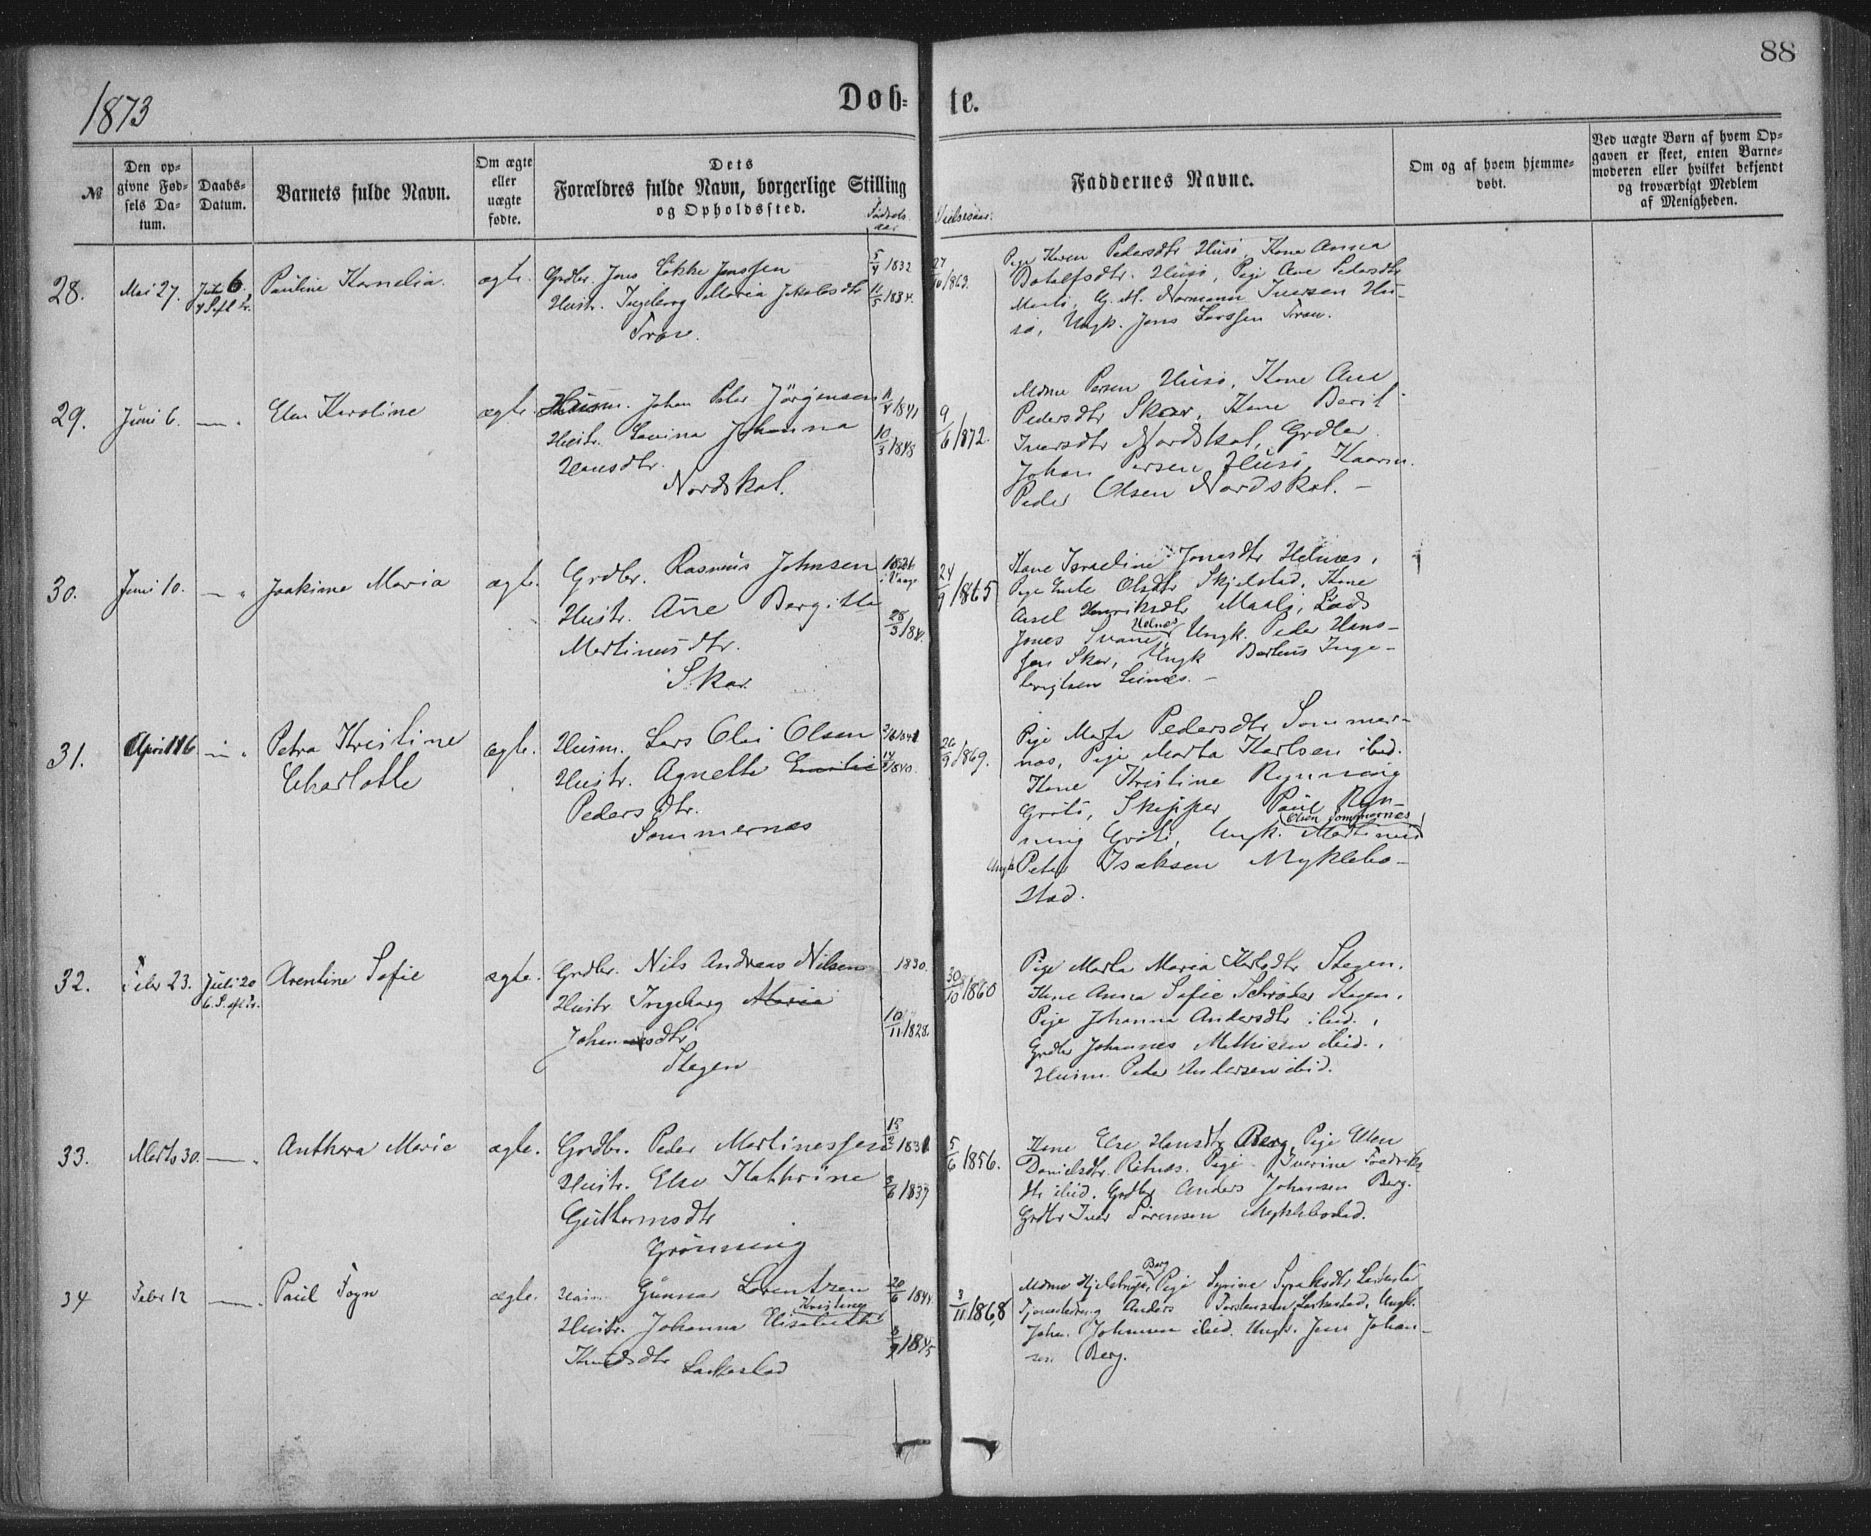 88
1873
Døb- te.
№
Den op-
givne Fød-
sels Da-
tum.
Daabs-
Datum.
Barnets fulde Navn.
Om ægte
eller
uægte
fødte.
Dets
Forældres fulde Navn, borgerlige Stilling
og Opholdssted.
Fødsels
aar
Vielsesaar.
Faddernes Navne.
Om og af hvem hjemme-
døbt.
Ved uægte Børn af hvem Op-
gaven er skeet, enten Barne-
moderen eller hvilket bekjendt
og troværdigt Medlem
af Menigheden.
28.
Mai 27.
6
Pauline Kornelia
ægte.
Grdbr. Jens Løkke Jenssen
Hustr. Ingeborg Maria Jakobsdtr
Tran.
5/4 1832
11/5 1834.
27/ 1863.
Pige Karen Pedersdtr Husø, Kone Anna
Husø, Pige Ane Pedersdtr
G. M. Normann Iversen Hu-
sø, Ungk. Jens Larssen Tran.
29.
Juni 6.
— "
Elen Karoline
ægte.
Husm. Johan Peter Jørgensen
Hustr. Lovina Johanna
Hansdtr.
Nordskot.
11/4 1841
10/3 1848
9/6 1872.
Mdme Persen Husø, Kone Ane
Pedersdtr Skar, Kone Berit
Iversdtr Nordskot, Grdbr.
Johan Persen Husø,
Peder Olsen Nordskot. —
30.
Juni 10.
— "
Joakime Maria
ægte.
Grdbr. Rasmus Johnsen
Hustr. Ane Bergitte
Martinusdtr.
Skar
24/9 1865
Kone Israeline Jonasdtr Helnes,
Pige Olsdtr Skjelstad, Kone
Henriksdtr
Helnes
Jones Ungk. Peder Hans-
sen Skar, Ungk Inge-
31.
April 16
— "
Petra Kristine
Charlotte
ægte.
Husm. Lars Olai Olsen
Hustr. Agnette Emilie
Pedersdtr.
Sommernes
26/9 1869.
Pige Marta Pedersdtr Sommer-
nes, Pige Marta Karlsen ibid.
Kone Kristine Rynning
Grøtø, Skipper Paul Ryn-
Olsen Sommernes
ning Grøtø, Ungk. Martinus
Ungk Peter Isaksen Myklebo-
stad.
32.
Febr 23.
Juli 20
6. S. eft. Tr.
Arentine Sofie
ægte.
Grdbr. Nils Andreas Nilsen
Hustr Ingeborg Maria
Johannesdtr
Stegen
1830.
10/11 1828.
30/10 1860
Pige Marta Maria Karlsdtr Stegen.
Kone Anna Sofie Schrøder Stegen,
Pige Johanna Andersdtr ibid.,
Grdbr Johannes Mathisen ibid.,
Husm. Peder Andersen ibid.
33.
Marts 30.
— "
Anthora Marie
ægte.
Grdbr. Peder Martinessen
Hustr. Else Kathrine
Guttormsdtr
Grønning
15/2 1831
3/6 1837
5/6 1856.
Kone Else Hansdtr Berg, Pige Ellen
Danielsdtr. Røtnes. Pige Iverine Fredriks-
dtr ibid. Grdbr Anders Johansen Berg.
Grdbr Iver Sørensen Myklebostad.
34
Febr 12
— "
Paul Fogn
ægte.
Gunnar Lorentzen
Kristine
Hustr. Johanna Elisabeth
Knudsdtr Laskestad
20/6 1844
8/9 1845
3/11 1868
Berg
Mdme Hjelstrup, Pige Syrine Laskestad
Anders Torstensen Laskestad, Ungk.
Johan Johansen ibid. Ungk. Jens Johan-
sen Berg.